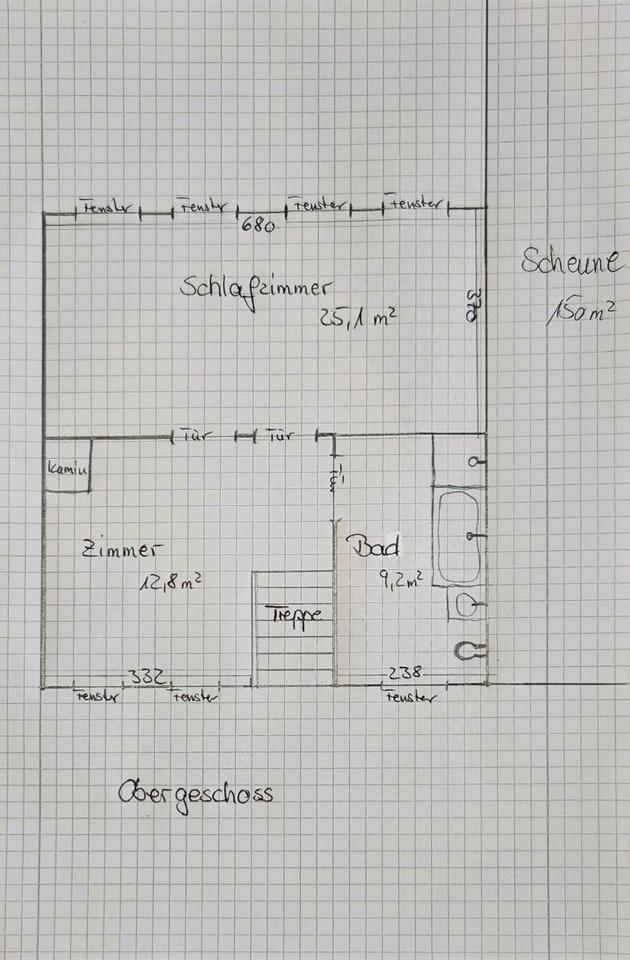 Fenster Fenster Fenster Fenster
680
Schlafzimmer
25,1 m²
370
Scheune
150 m²
Tür Tür
Kamin
Tür
Zimmer
12,8 m²
Bad
9,2 m²
Treppe
332
238
Fenster Fenster Fenster
Obergeschoss